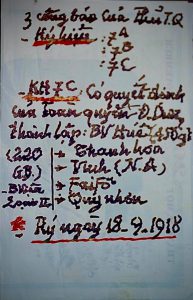 3 công báo của Thủ T.Q
- Ký hiệu : 7A
: 7B
: 7C
- KH 7C: Có quyết định
của toàn quyền Đ. Dương
thành lập: BV Huế (450g)
(220 + Thanh hóa
G.B.) + Vinh (N.A)
+ Faifo
+ Quy nhơn
* Ký ngày 18-9-1918